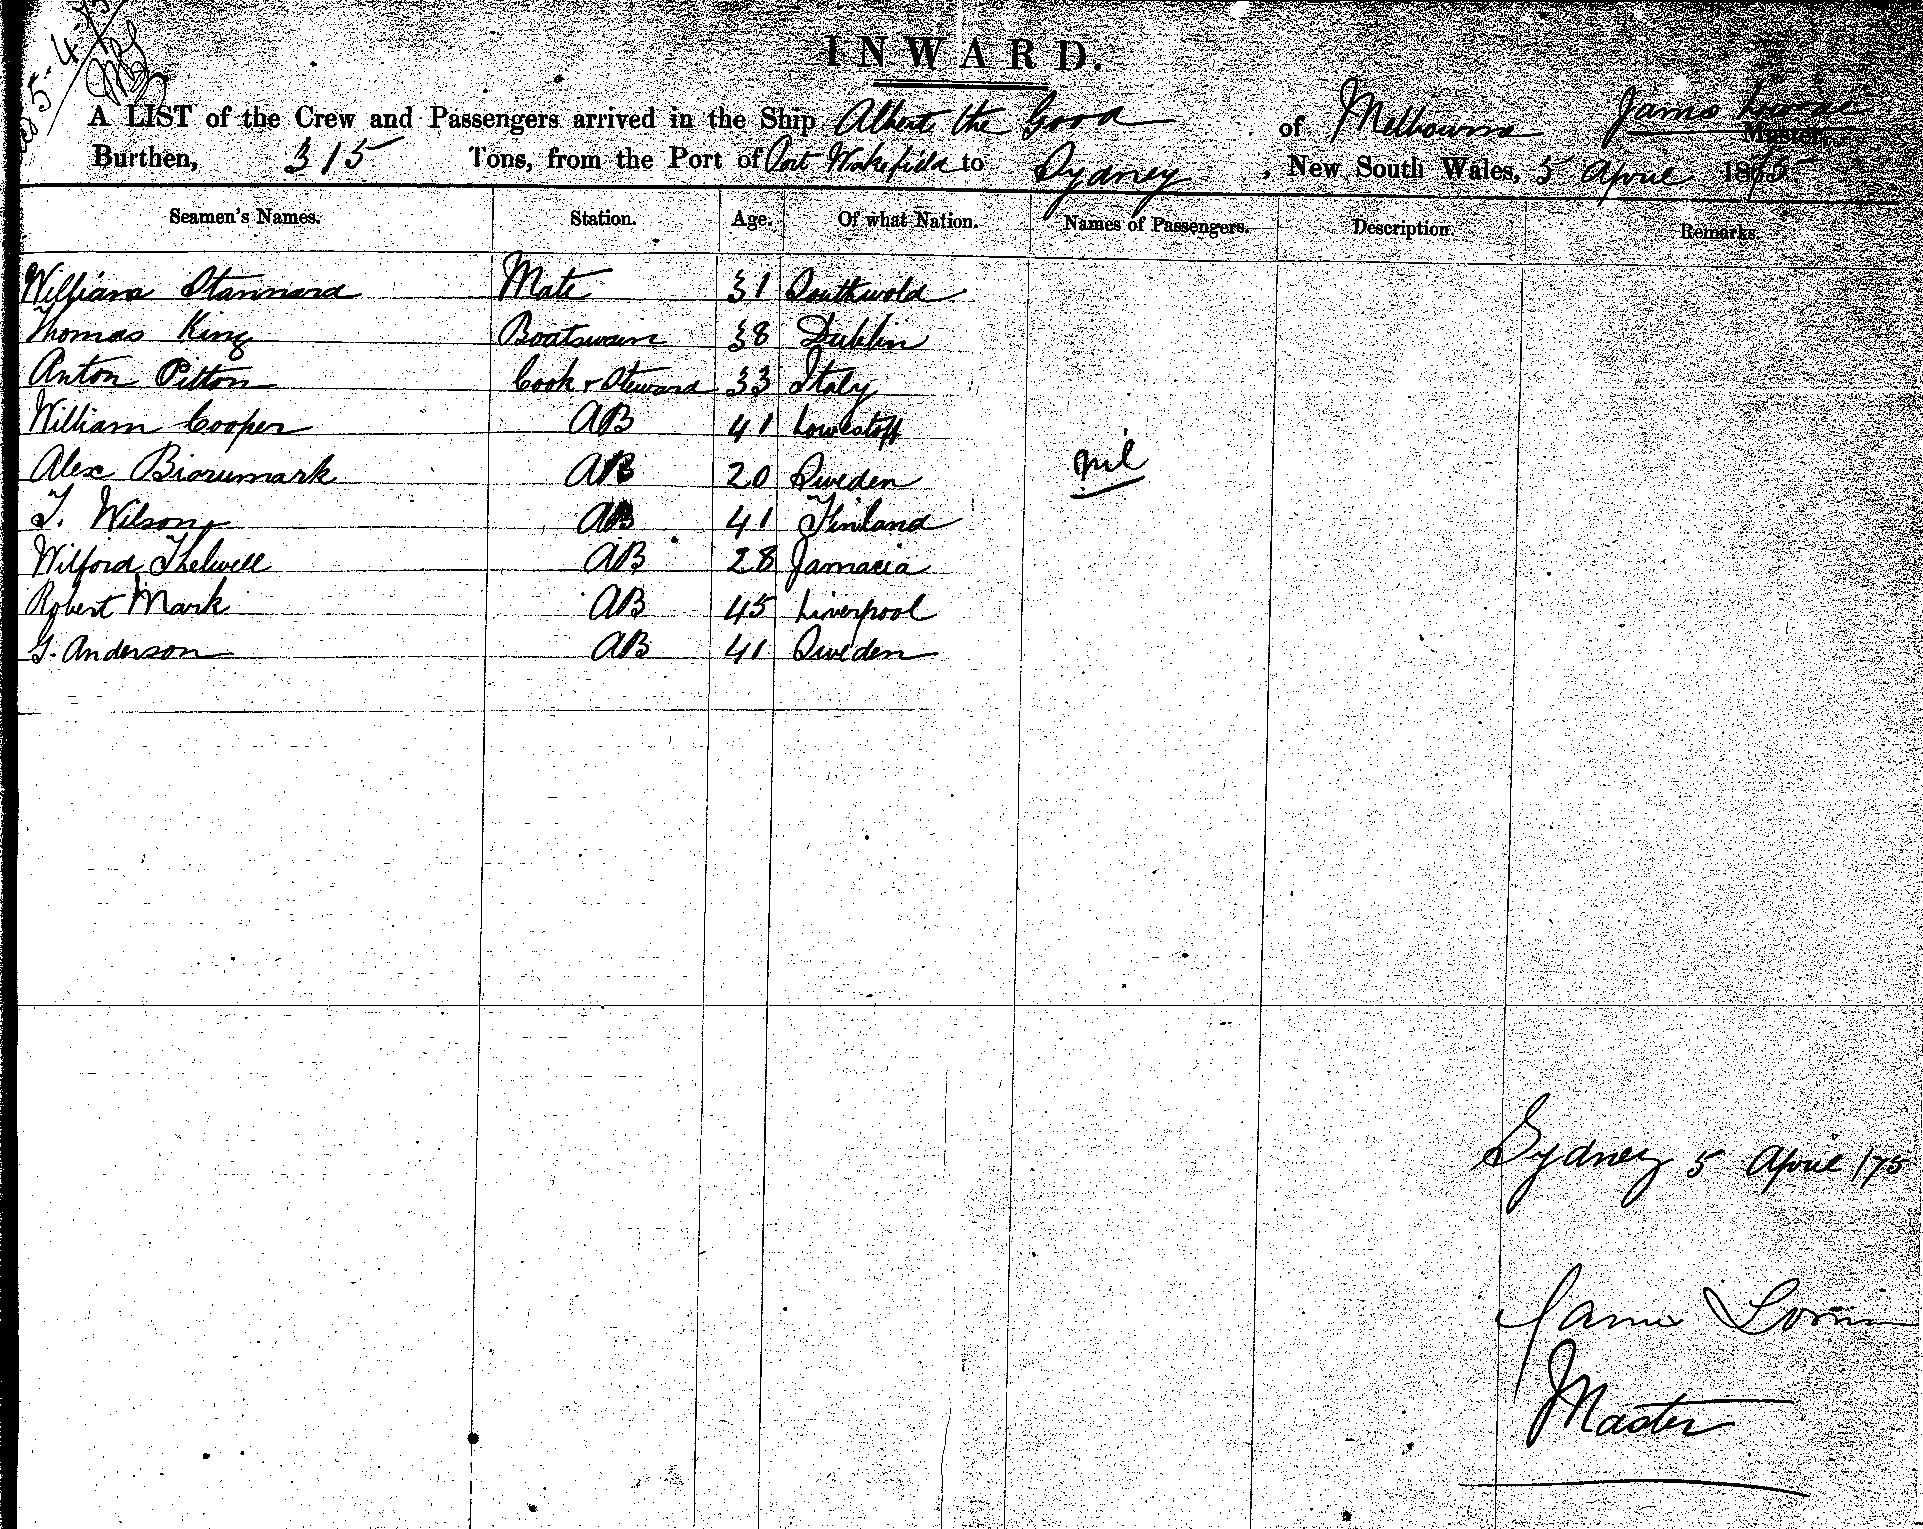 5-4-75
INWARD.
A LIST of the Crew and Passengers arrived in the Ship Albert the Good of Melbourne James Master,
Burthen, 315 Tons, from the Port of Port Wakefield to Sydney, New South Wales, 5 April 1875
Seamen's Names. Station. Age. Of what Nation. Names of Passengers. Description. Remarks.
William Stannard Mate 31 Southwold
Thomas King Boatswain 38 Dublin
Anton Pitton Cook & Steward 33 Italy
William Cooper AB 41 Lowestoff
Alex AB 20 Sweden
nil
T. Wilson AB 41 Finland
Wilford Thelwell AB 28 Jamacia
Robert Mark AB 45 Liverpool
G. Anderson AB 41 Sweden
Sydney 5 April /75
James
Master